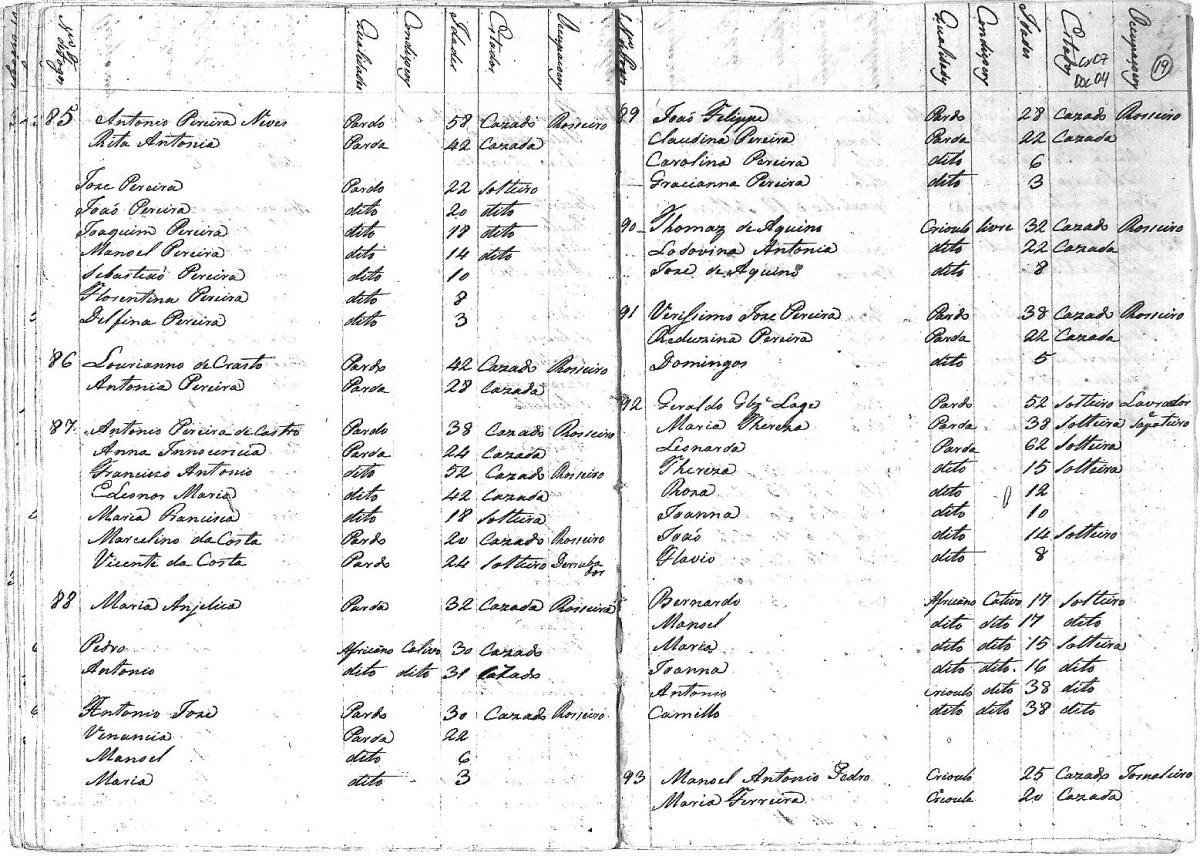 Nos de Fogos Qualidades Condiçoes Idades Estados Ocupaçoes
85 Antonio Pereira Neves Pardo 58 Cazado Rosseiro
Rita Antonia Parda 42 Cazada
Joze Pereira Pardo 22 Solteiro
Joaõ Pereira dito 20 dito
Joaquim Pereira dito 18 dito
Manoel Pereira dito 14 dito
Sebastiaõ Pereira dito 10
Florentina Pereira dito 8
Delfina Pereira dito 3
86 Lourianno de Crasto Pardo 42 Cazado Rosseiro
Antonia Pereira Parda 28 Cazada
87 Antonio Pereira de Castro Pardo 38 Cazado Rosseiro
Anna Innocencia Parda 24 Cazada
Francisco Antonio dito 52 Cazado Rosseiro
Eleonor Maria dito 42 Cazada
Maria Francisca dito 18 Solteira
Marcelino da Costa Pardo 20 Cazado Rosseiro
Vicente da Costa Pardo 24 Solteiro Derrubador
88 Maria Anjelica Parda 32 Cazada Rosseira
Pedro Africano Cativo 30 Cazado
Antonio dito dito 31 Cazado
Antonio Joze Pardo 30 Cazado Rosseiro
Venancia Parda 22
Manoel dito 6
Maria dito 3
Qualidades Condiçoes Idades Estados Ocupaçoes
19
Cx07
Doc 04
89 Joaõ Felippe Pardo 28 Cazado Rosseiro
Claudina Pereira Parda 22 Cazada
Carolina Pereira dito 6
Gracianna Pereira dito 3
90 Thomaz de Aquino Crioulo livre 32 Cazado Rosseiro
Lodovina Antonia dito 22 Cazada
Joze de Aquino dito 8
91 Verissimo Joze Pereira Pardo 38 Cazado Rosseiro
Reduzina Pereira Parda 22 Cazada
Domingos dito 5
92 Geraldo Glz Lage Pardo 52 Solteiro Lavrador
Maria Thereza Parda 38 Solteira Sapateiro
Leonarda Parda 62 Solteira
Thereza dito 15 Solteira
Roza dito 12
Joanna dito 10
Joaõ dito 14 Solteiro
Flavio dito 8
Bernardo Africano Cativo 17 Solteiro
Manoel dito dito 17 dito
Maria dito dito 15 Solteira
Joanna dito dito 16 dito
Antonio Crioulo dito 38 dito
Camillo dito dito 38 dito
93 Manoel Antonio Pedro Crioulo 25 Cazado Jornaleiro
Maria Ferreira Crioula 20 Cazada